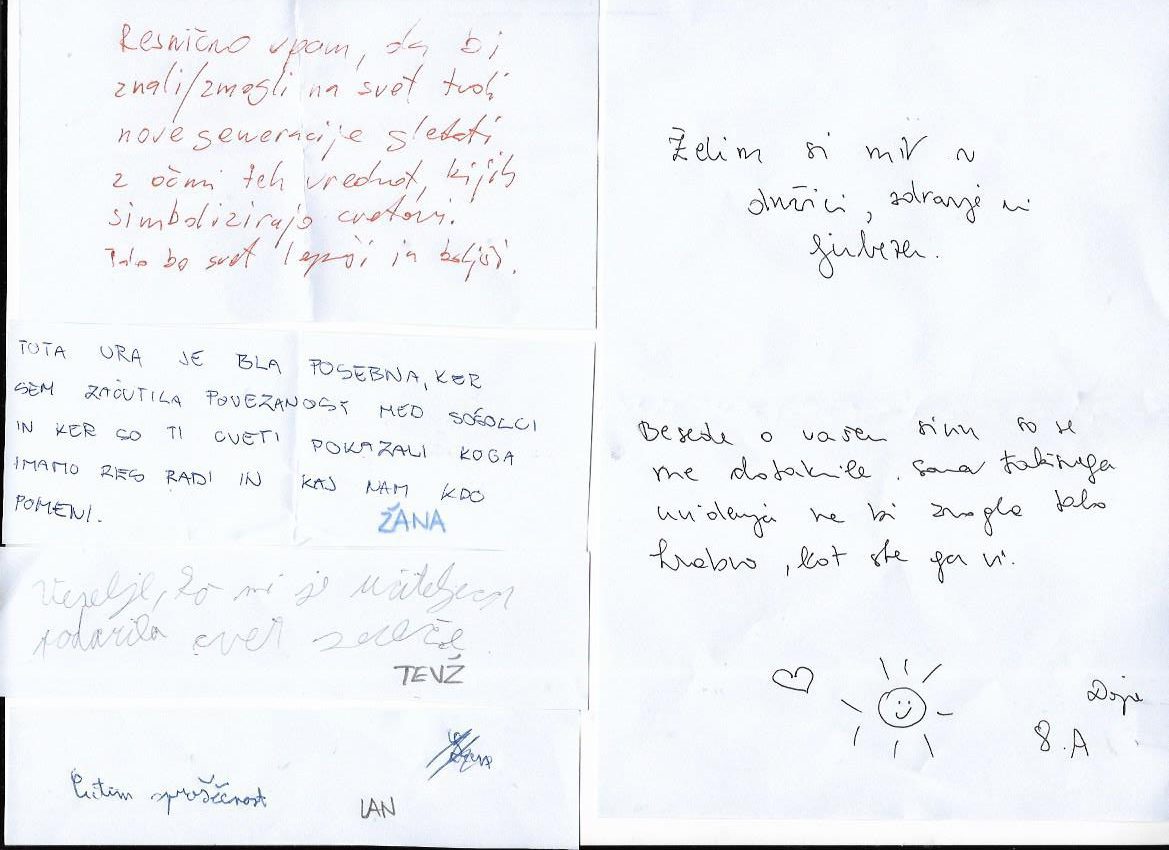 Resnično upam, da bi
znali/zmogli na svet tvoji
nove generacije gledati
z očmi teh vrednot, ki jih
simbolizirajo cvetovi.
Tako bo svet lepši in boljši.
TOTA URA JE BLA POSEBNA, KER
SEM ZAČUTILA POVEZANOST MED SOŠOLCI
IN KER SO TI CVETI POKAZALI KOGA
IMAMO RES RADI IN KAJ NAM KDO
POMENI.
ŽANA
Veselje, ko mi je učiteljica
podarila cvet sreče
TEVŽ
čutim sproščenost
LAN
Želim si mir v
družini, zdravje in
ljubezen.
Besede o vašem sinu so se
me dotaknile. Sama takšnega
življenja ne bi zmogla tako
hrabro, kot ste ga vi.
8.A